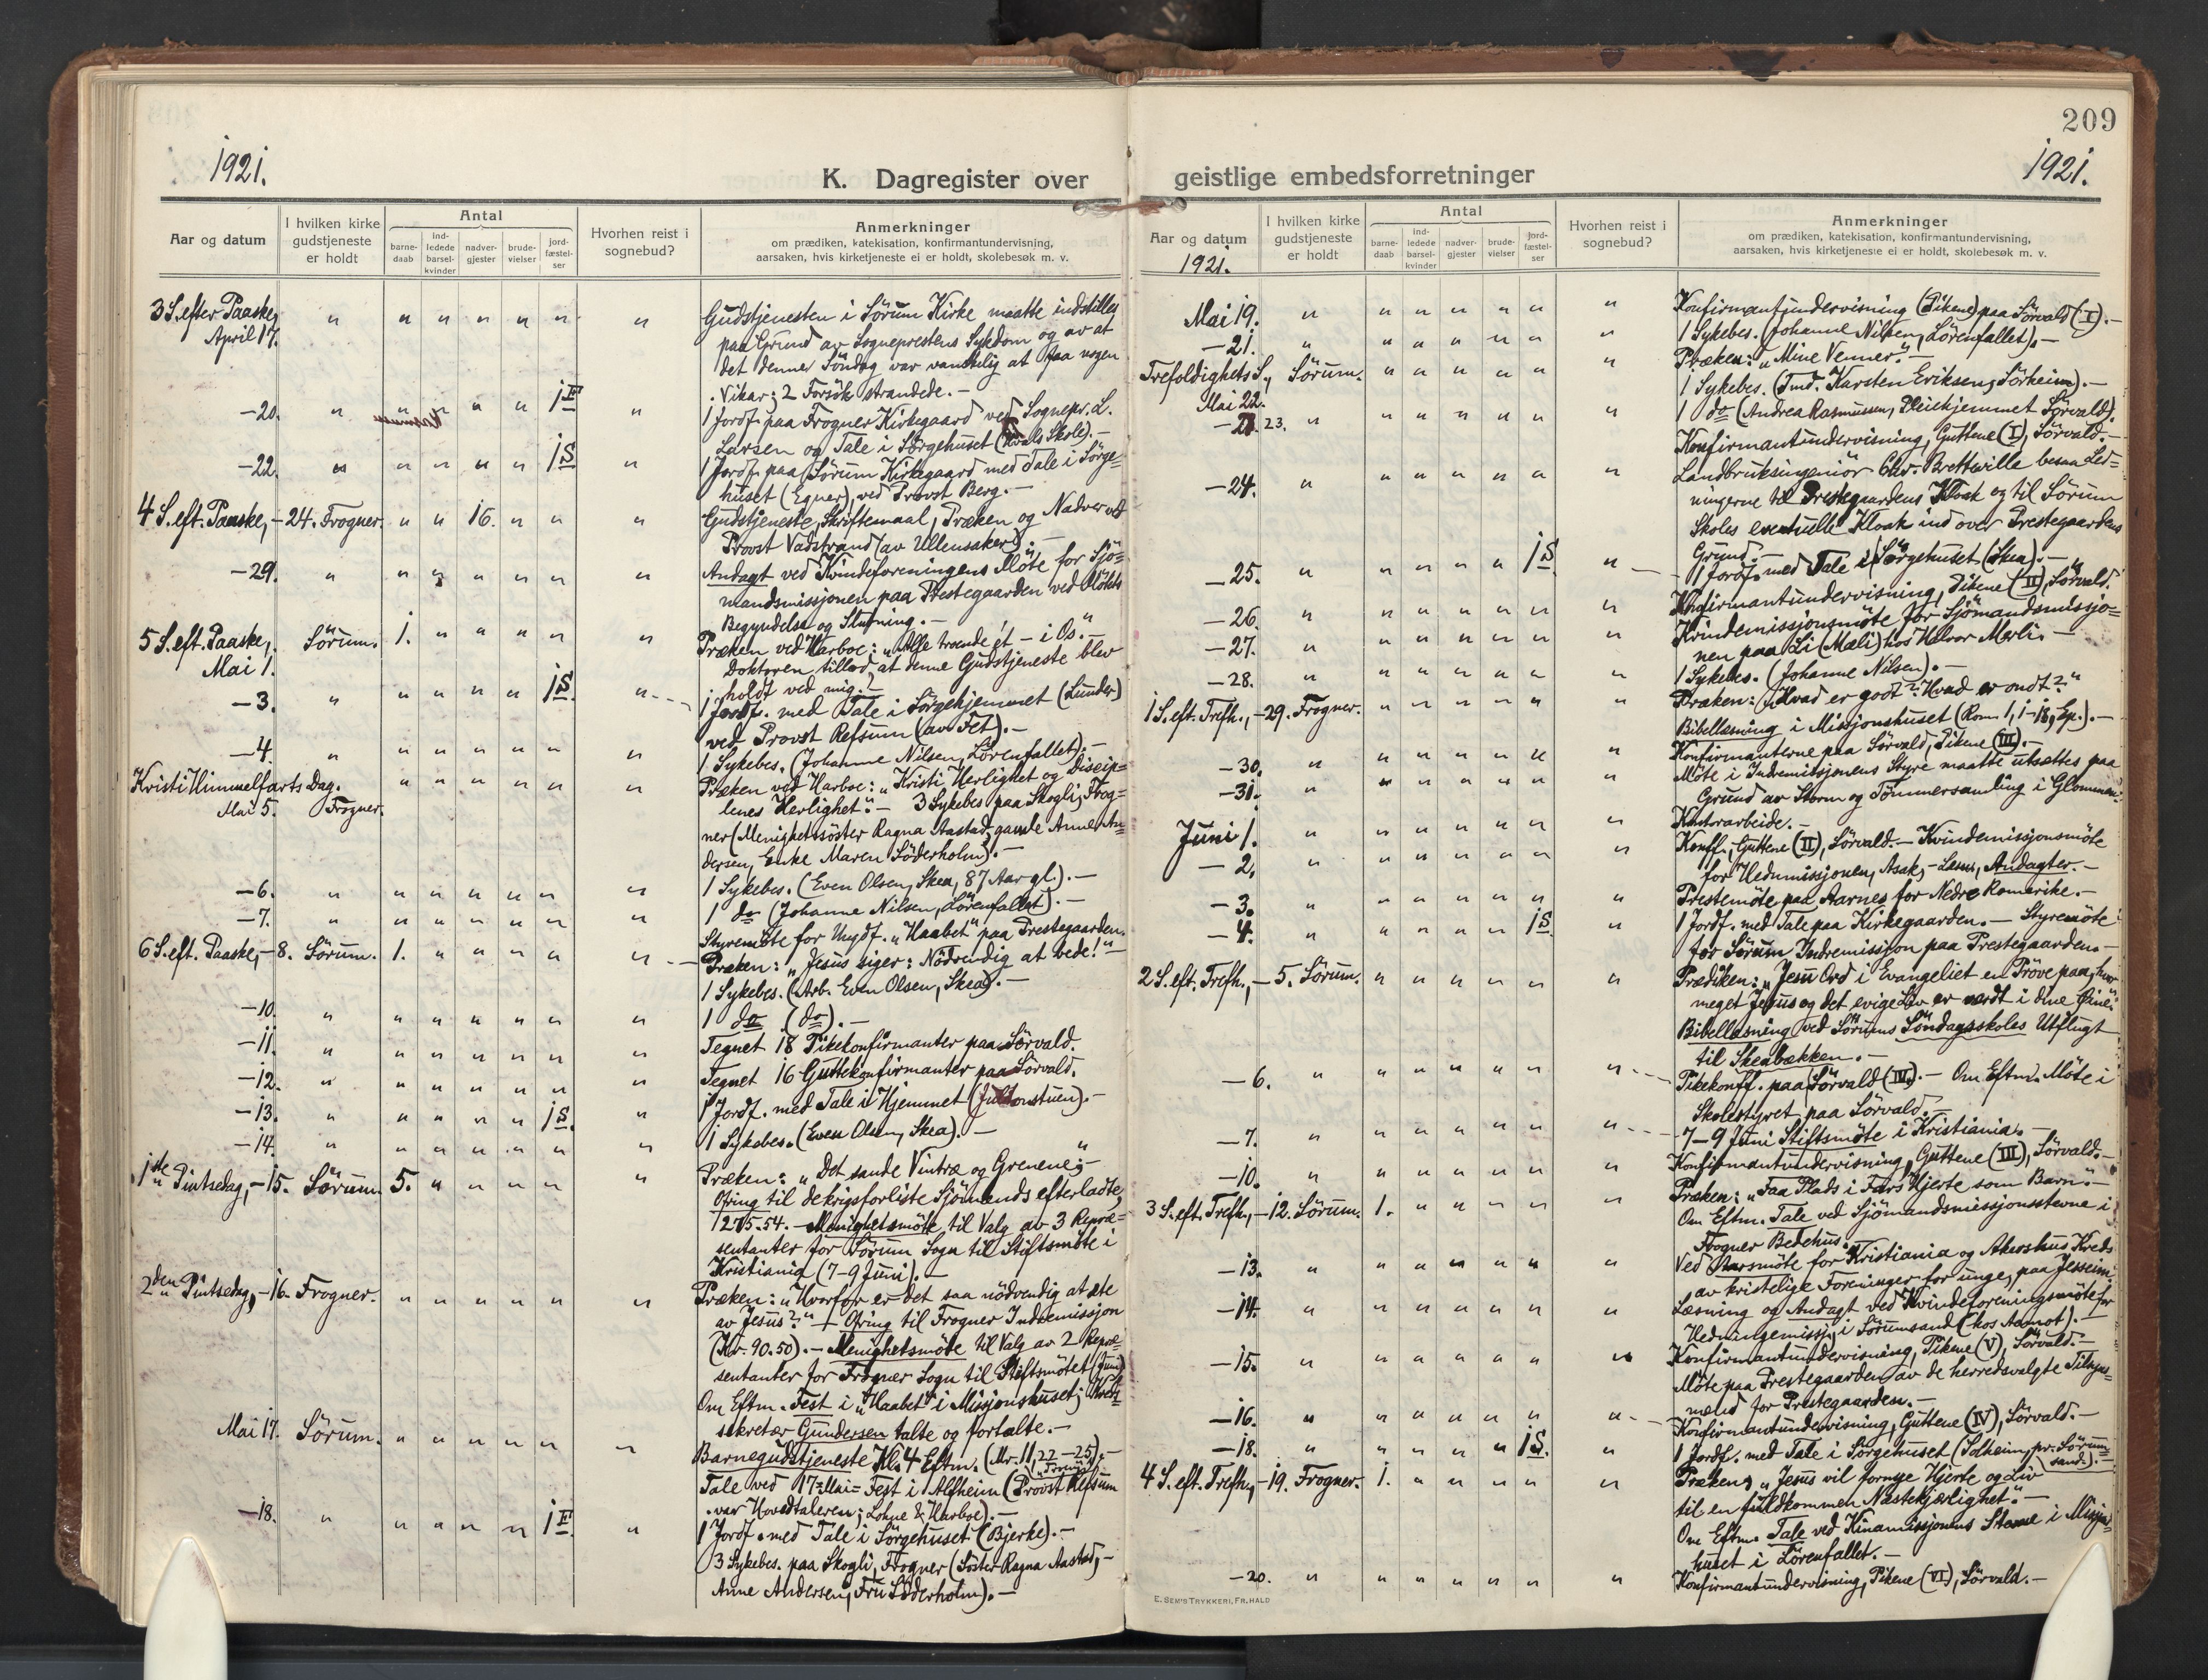 209
1921.
1921.
K. Dagregister over
geistlige embedsforretninger
Aar og datum
I hvilken kirke gudstjeneste er holdt
Antal
barne-daab
ind-ledede barsel-kvinder
nadver-gjester
brude-vielser
jord-fæstel-ser
Hvorhen reist i sognebud?
Anmerkninger
om prædiken, katekisation, konfirmantundervisning,
aarsaken, hvis kirketjeneste ei er holdt, skolebesøk m. v.
3 S. efter Paaske, " " " " " " " Gudstjenesten i Sörum Kirke maatte indstilles
April 17. paa Grund av Sogneprestens Sykdom og av at
det denne Söndag var vanskelig at faa nogen
Vikar; 2 Forsök strandede. —
—20. " " " " " 1 F " 1 Jordf. paa Frogner Kirkegaard ved Sognepr. L.
Larsen og Tale i Sörgehuset (Kvals Skole). —
—22. " " " " " 1 S " 1 Jordf. paa Sörum Kirkegaard med Tale i Sörge=
huset (Egner), ved Provst Berg. —
4 S. eft. Paaske, —24. Frogner. " " 16. " " " Gudstjeneste, Skriftemaal, Præken og Nadver ved
Provst Vadstrand (av Ullensaker). —
—29. " " " " " " " Andagt ved Kvindeforeningens Möte for Sjö=
mandsmissjonen paa Prestegaarden ved Mötets
Begyndelse og Slutning. —
5 S. eft. Paaske, Sörum. 1. " " " " " Præken ved Harboe: "Alle troende ét — i Os." —
Mai 1. Doktoren tillod, at denne Gudstjeneste blev
holdt ved mig. —
—3. " " " " " 1 S. " 1 Jordf. med Tale i Sörgehjemmet (Lunder)
ved Provst Refsum (av Fet). —
—4. " " " " " " " 1 Sykebes. (Johanne Nilsen, Lörenfallet). —
Kristi Himmelfarts Dag. " " " " " " Præken ved Harboe: "Kristi Herlighet og Discip=
Mai 5. Frogner. lenes Herlighet". — 3 Sykebes. paa Skogli, Frog=
ner (Menighetssöster Ragna Aastad, gamle Anne An=
dersen, Enke Maren Söderholm). —
—6. " " " " " " " 1 Sykebes. (Even Olsen, Skea, 87 Aar gl.). —
—7. " " " " " " " 1 do (Johanne Nilsen, Lörenfallet). —
Styremöte for Ungdf. "Haabet" paa Prestegaarden.
6 S. eft. Paaske, —8. Sörum. 1. " " " " " Præken: "Jesus siger: Nödvendig at bede!" —
1 Sykebes. (Arb. Even Olsen, Skea). —
—10. " " " " " " " 1 do (do). —
—11. " " " " " " " Tegnet 18 Pikekonfirmanter paa Sörvald.
—12. " " " " " " " Tegnet 16 Guttekonfirmanter paa Sörvald.
—13. " " " " " 1 S. " 1 Jordf. med Tale i Hjemmet
—14. " " " " " " " 1 Sykebes. (Even Olsen, Skea). —
1ste Pintsedag, —15. Sörum 5. " " " " " Præken: "Det sande Vintræ og Grenene". —
Ofring til de krigsforliste Sjömænds efterladte,
1275.54. — Menighetsmöte til Valg av 3 Repræ=
sentanter for Sörum Sogn til Stiftsmöte i
Kristiania (7-9 Juni). —
2den Pintsedag, —16. Frogner. " " " " " " Præken: "Hvorfor er det saa nödvendig at æte
av Jesus?" — Ofring til Frogner Indremissjon
(Kr. 90.50). — Menighetsmöte til Valg av 2 Repræ=
sentanter for Frogner Sogn til Stiftsmötet (Juni)
Om Eftm. Fest i "Haabet" i Missjonshuset; Kreds=
sekretær Gundersen talte og fortalte. —
Mai 17. Sörum. " " " " " " Barnegudstjeneste Kl. 4 Eftm. (Mr. 11, 22—25). —
Tale ved 17=Mai= Fest i Alfheim (Provst Refsum
var Hovedtaleren; Lohne & Harboe). —
—18. " " " " " 1 F. " 1 Jordf. med Tale i Sörgehuset (Bjerke). —
3 Sykebes. paa Skogli, Frogner (Söster Ragna Aastad, —
Anne Andersen, Fru Söderholm). —
Aar og datum
1921.
I hvilken kirke gudstjeneste er holdt
Antal
barne-daab
ind-ledede barsel-kvinder
nadver-gjester
brude-vielser
jord-fæstel-ser
Hvorhen reist i sognebud?
Anmerkninger
om prædiken, katekisation, konfirmantundervisning,
aarsaken, hvis kirketjeneste ei er holdt, skolebesøk m. v.
Mai 19. " " " " " " " Konfirmantundervisning (Pikene) paa Sörvald (I). —
—21. " " " " " " " 1 Sykebes. (Johanne Nilsen, Lörenfallet). —
Trefoldighets S., Sörum. " " " " " " Præken: "Mine Venner". —
Mai 22. 1 Sykebes. (Tmd. Karsten Eriksen, Sörheim). —
1 do (Andrea Rasmussen, Pleiehjemmet Sörvald).
—23. " " " " " " " Konfirmantundervisning, Guttene (I), Sörvald. —
—24. " " " " " " " Landbruksingeniör Chr. Brettville besaa Led=
ningerne til Prestegaardens Kloak og til Sörum
Skoles eventuelle Kloak ind over Prestegaardens
Grund. —
—25. " " " " " 1 S. " 1 Jordf. med Tale i Sörgehuset (Skea). —
—26. " " " " " " " Konfirmantundervisning, Pikene (II), Sörvald.
—27. " " " " " " " Kvindemissjonsmöte for Sjömandsmissjo=
nen paa Li (Mæli) hos Halvor Merli. —
—28. " " " " " " " 1 Sykebes. (Johanne Nilsen). —
1 S. eft. Trefh., —29. Frogner. " " " " " " Præken: "Hvad er godt? Hvad er ondt?"
Bibellæsning i Missjonshuset (Rom. 1, 1-18, Ep.). —
—30. " " " " " " " Konfirmanterne paa Sörvald, Pikene (III). —
—31. " " " " " " " Möte i Indremissjonens Styre maatte utsættes paa
Grund av Storm og Tömmersamling i Glommen.
Juni 1. " " " " " " " Kontorarbeide. —
—2. " " " " " " " Konff., Guttene (II), Sörvald. — Kvindemissjonsmöte
for Hedn.missjonen, Asak, Andagter. —
—3. " " " " " " " Prestemöte paa Aarnes for Nedre Romerike. —
—4. " " " " " 1 S. " 1 Jordf. med Tale paa Kirkegaarden. — Styremöte
for Sörum Indremissjon paa Prestegaarden. —
2 S. eft. Trefh., —5. Sörum. " " " " " " Prædiken: "Jesu Ord i Evangeliet en Pröve paa, hvor
meget Jesus og det evige Liv er værdt i dine Öine".
Bibellæsning ved Sörums Söndagsskoles Utflugt
til Skeabækken. —
—6. " " " " " " " Pikekonff. paa Sörvald (IV). — Om Eftm. Möte i
Skolestyret paa Sörvald. —
—7. " " " " " " " 7—9 Juni Stiftsmöte i Kristiania. —
—10. " " " " " " " Konfirmantundervisning, Guttene (III), Sörvald. —
3 S. eft. Trefh., —12. Sörum. 1. " " " " " Præken: "Faa Plads i Fars Hjerte som Barn". —
Om Eftm. Tale ved Sjömandsmissjonsstevne i
Frogner Bedehus. —
—13. " " " " " " " Ved Aarsmöte for Kristiania og Akershus Kreds
av kristelige Foreninger for unge, paa Jessem.
—14. " " " " " " " Læsning og Andagt ved Kvindeforeningsmöte for
Hedningemissj. i Sörumsand (hos Aamot). —
—15. " " " " " " " Konfirmantundervisning, Pikene (V), Sörvald. —
Möte paa Prestegaarden av de herredsvalgte Tilsyns=
mænd for Prestegaarden. —
—16. " " " " " " " Konfirmantundervisning, Guttene (IV), Sörvald. —
—18. " " " " " 1 S. " 1 Jordf. med Tale i Sörgehuset (Solheim, pr. Sörum=
sand). —
4 S. eft. Trefh., —19. Frogner. 1. " " " " " Præken: "Jesus vil fornye Hjerte og Liv
til en fuldkommen Næstekjærlighet". —
Om Eftm. Tale ved Kinamissjonens Stevne i Missjons=
huset i Lörenfallet. —
—20. " " " " " " " Konfirmantundervisning, Pikene (VI), Sörvald. —
E. SEM'S TRYKKERI, FR.HALD